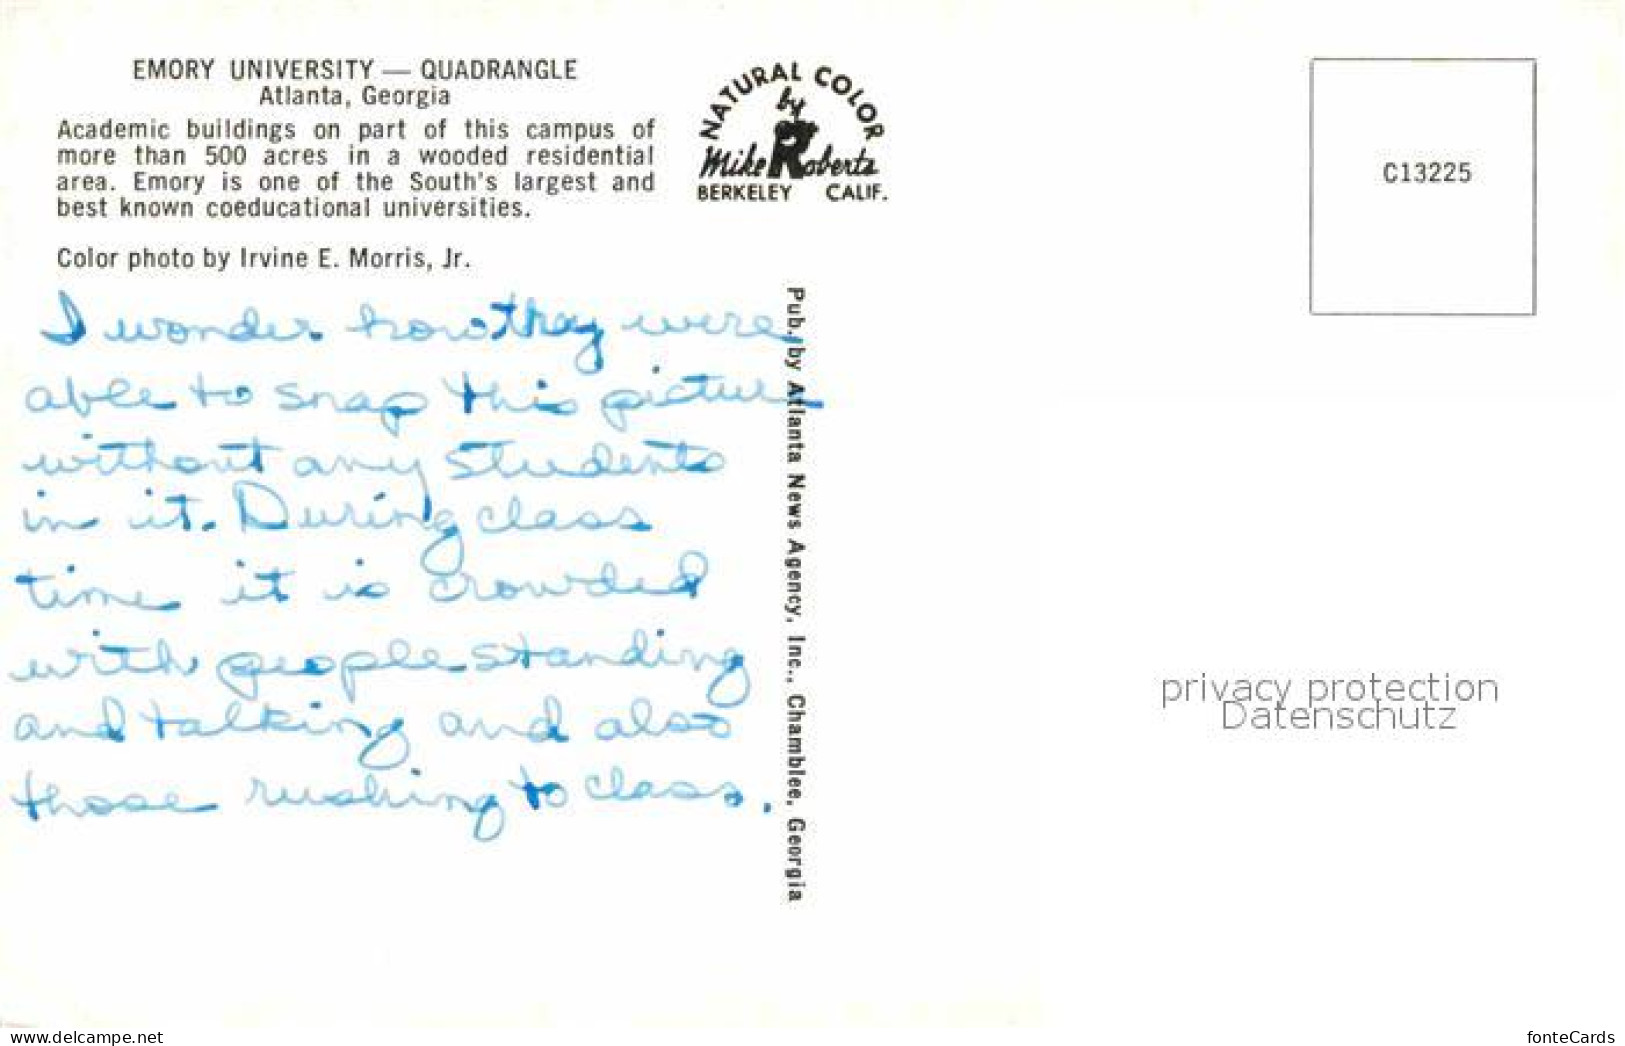 EMORY UNIVERSITY — QUADRANGLE
Atlanta, Georgia
Academic buildings on part of this campus of
more than 500 acres in a wooded residential
area. Emory is one of the South's largest and
best known coeducational universities.
Color photo by Irvine E. Morris, Jr.
NATURAL COLOR
by
Mike Roberts
BERKELEY CALIF.
C13225
I wonder how they were
able to snap this picture
without any students
in it. During class
time it is crowded
with people standing
and talking and also
those rushing to class.
Pub. by Atlanta News Agency, Inc., Chamblee, Georgia
privacy protection
Datenschutz
www.delcampe.net
fonteCards